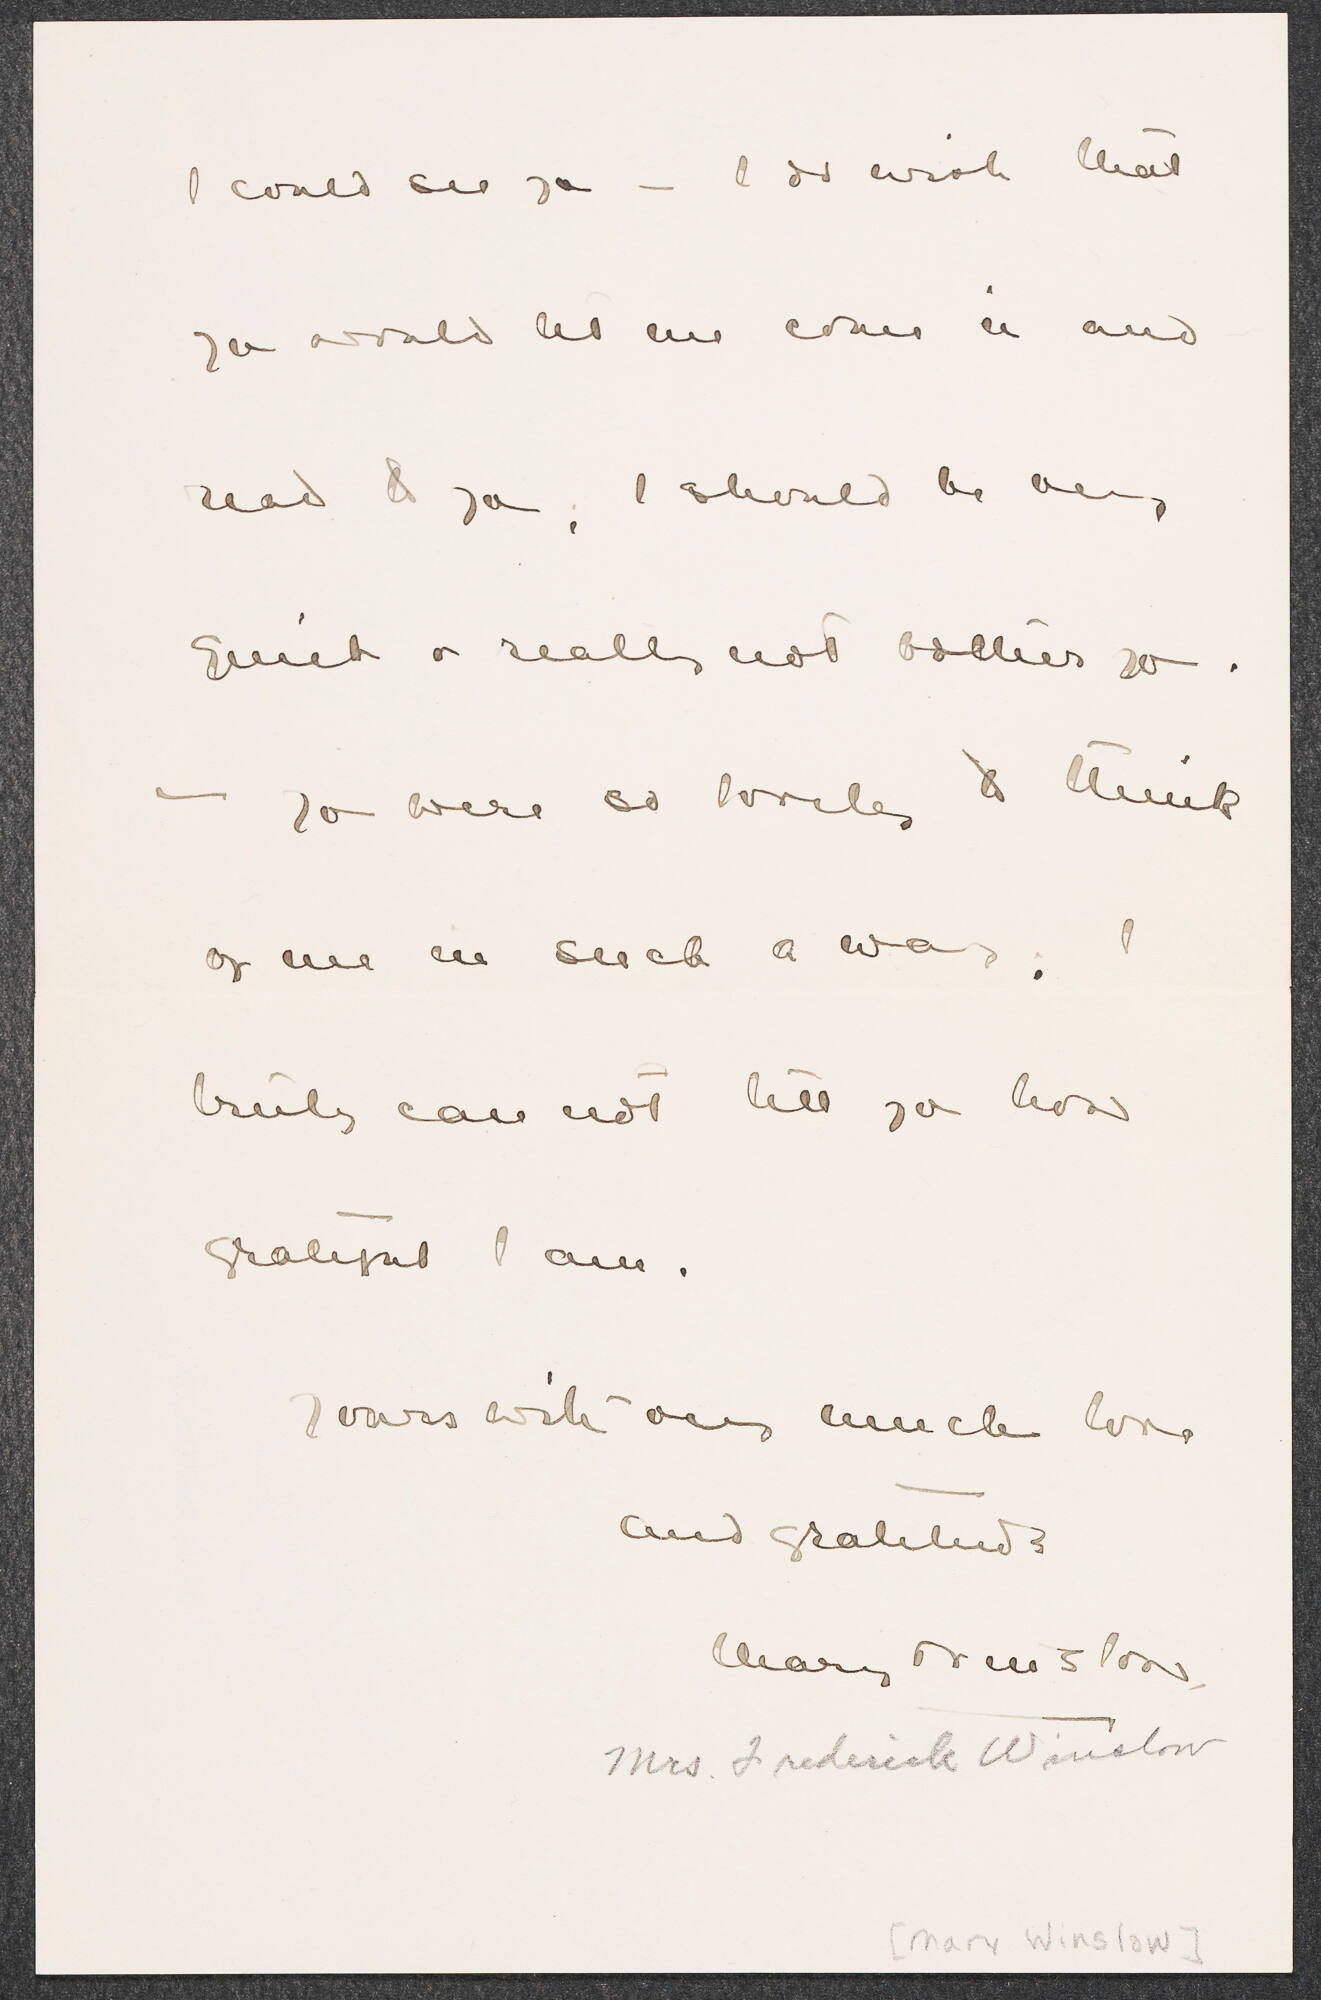 I could see yo – I do wish that
yo would let me come in and
read to yo; I should be very
quiet & really not bother yo.
– yo were so lovely to think
of me in such a way; I
truly can not tell yo how
grateful I am.
Yours with very much love
and gratitude
Mary Winslow
Mrs. Frederick Winslow
[Mary Winslow]